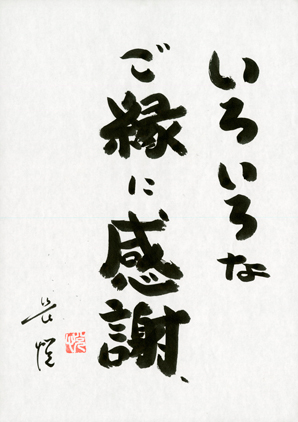 いろいろな
ご縁に
感謝、